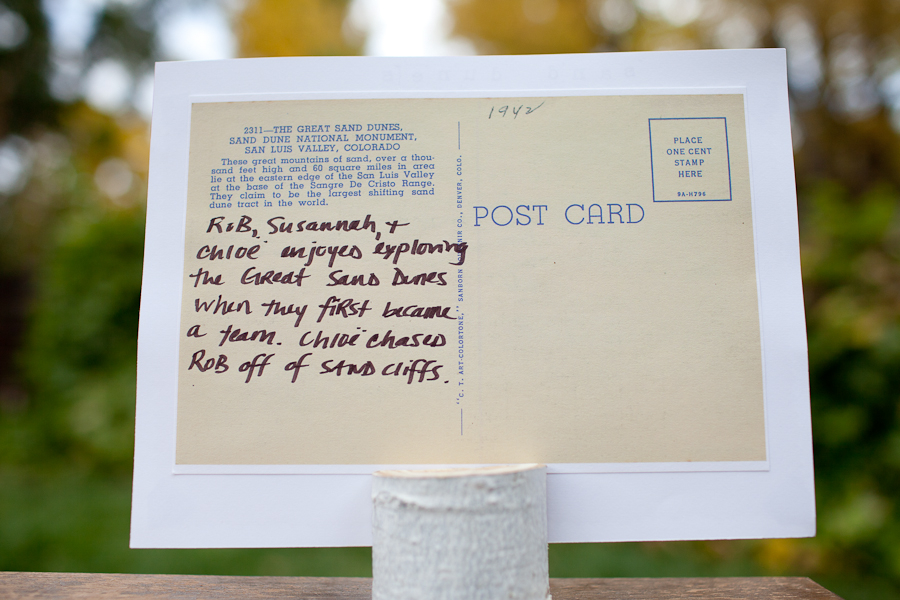 1942
2311—THE GREAT SAND DUNES,
SAND DUNE NATIONAL MONUMENT,
SAN LUIS VALLEY, COLORADO
These great mountains of sand, over a thou-
sand feet high and 60 square miles in area
lie at the eastern edge of the San Luis Valley
at the base of the Sangre De Cristo Range.
They claim to be the largest shifting sand
dune tract in the world.
ROB, Susannah, +
Chloë enjoyed exploring
the Great Sand Dunes
when they first became
a team. Chloë chased
ROB off of sand cliffs.
"C. T. ART-COLORTONE," SANBORN CO., DENVER, COLO.
POST CARD
PLACE
ONE CENT
STAMP
HERE